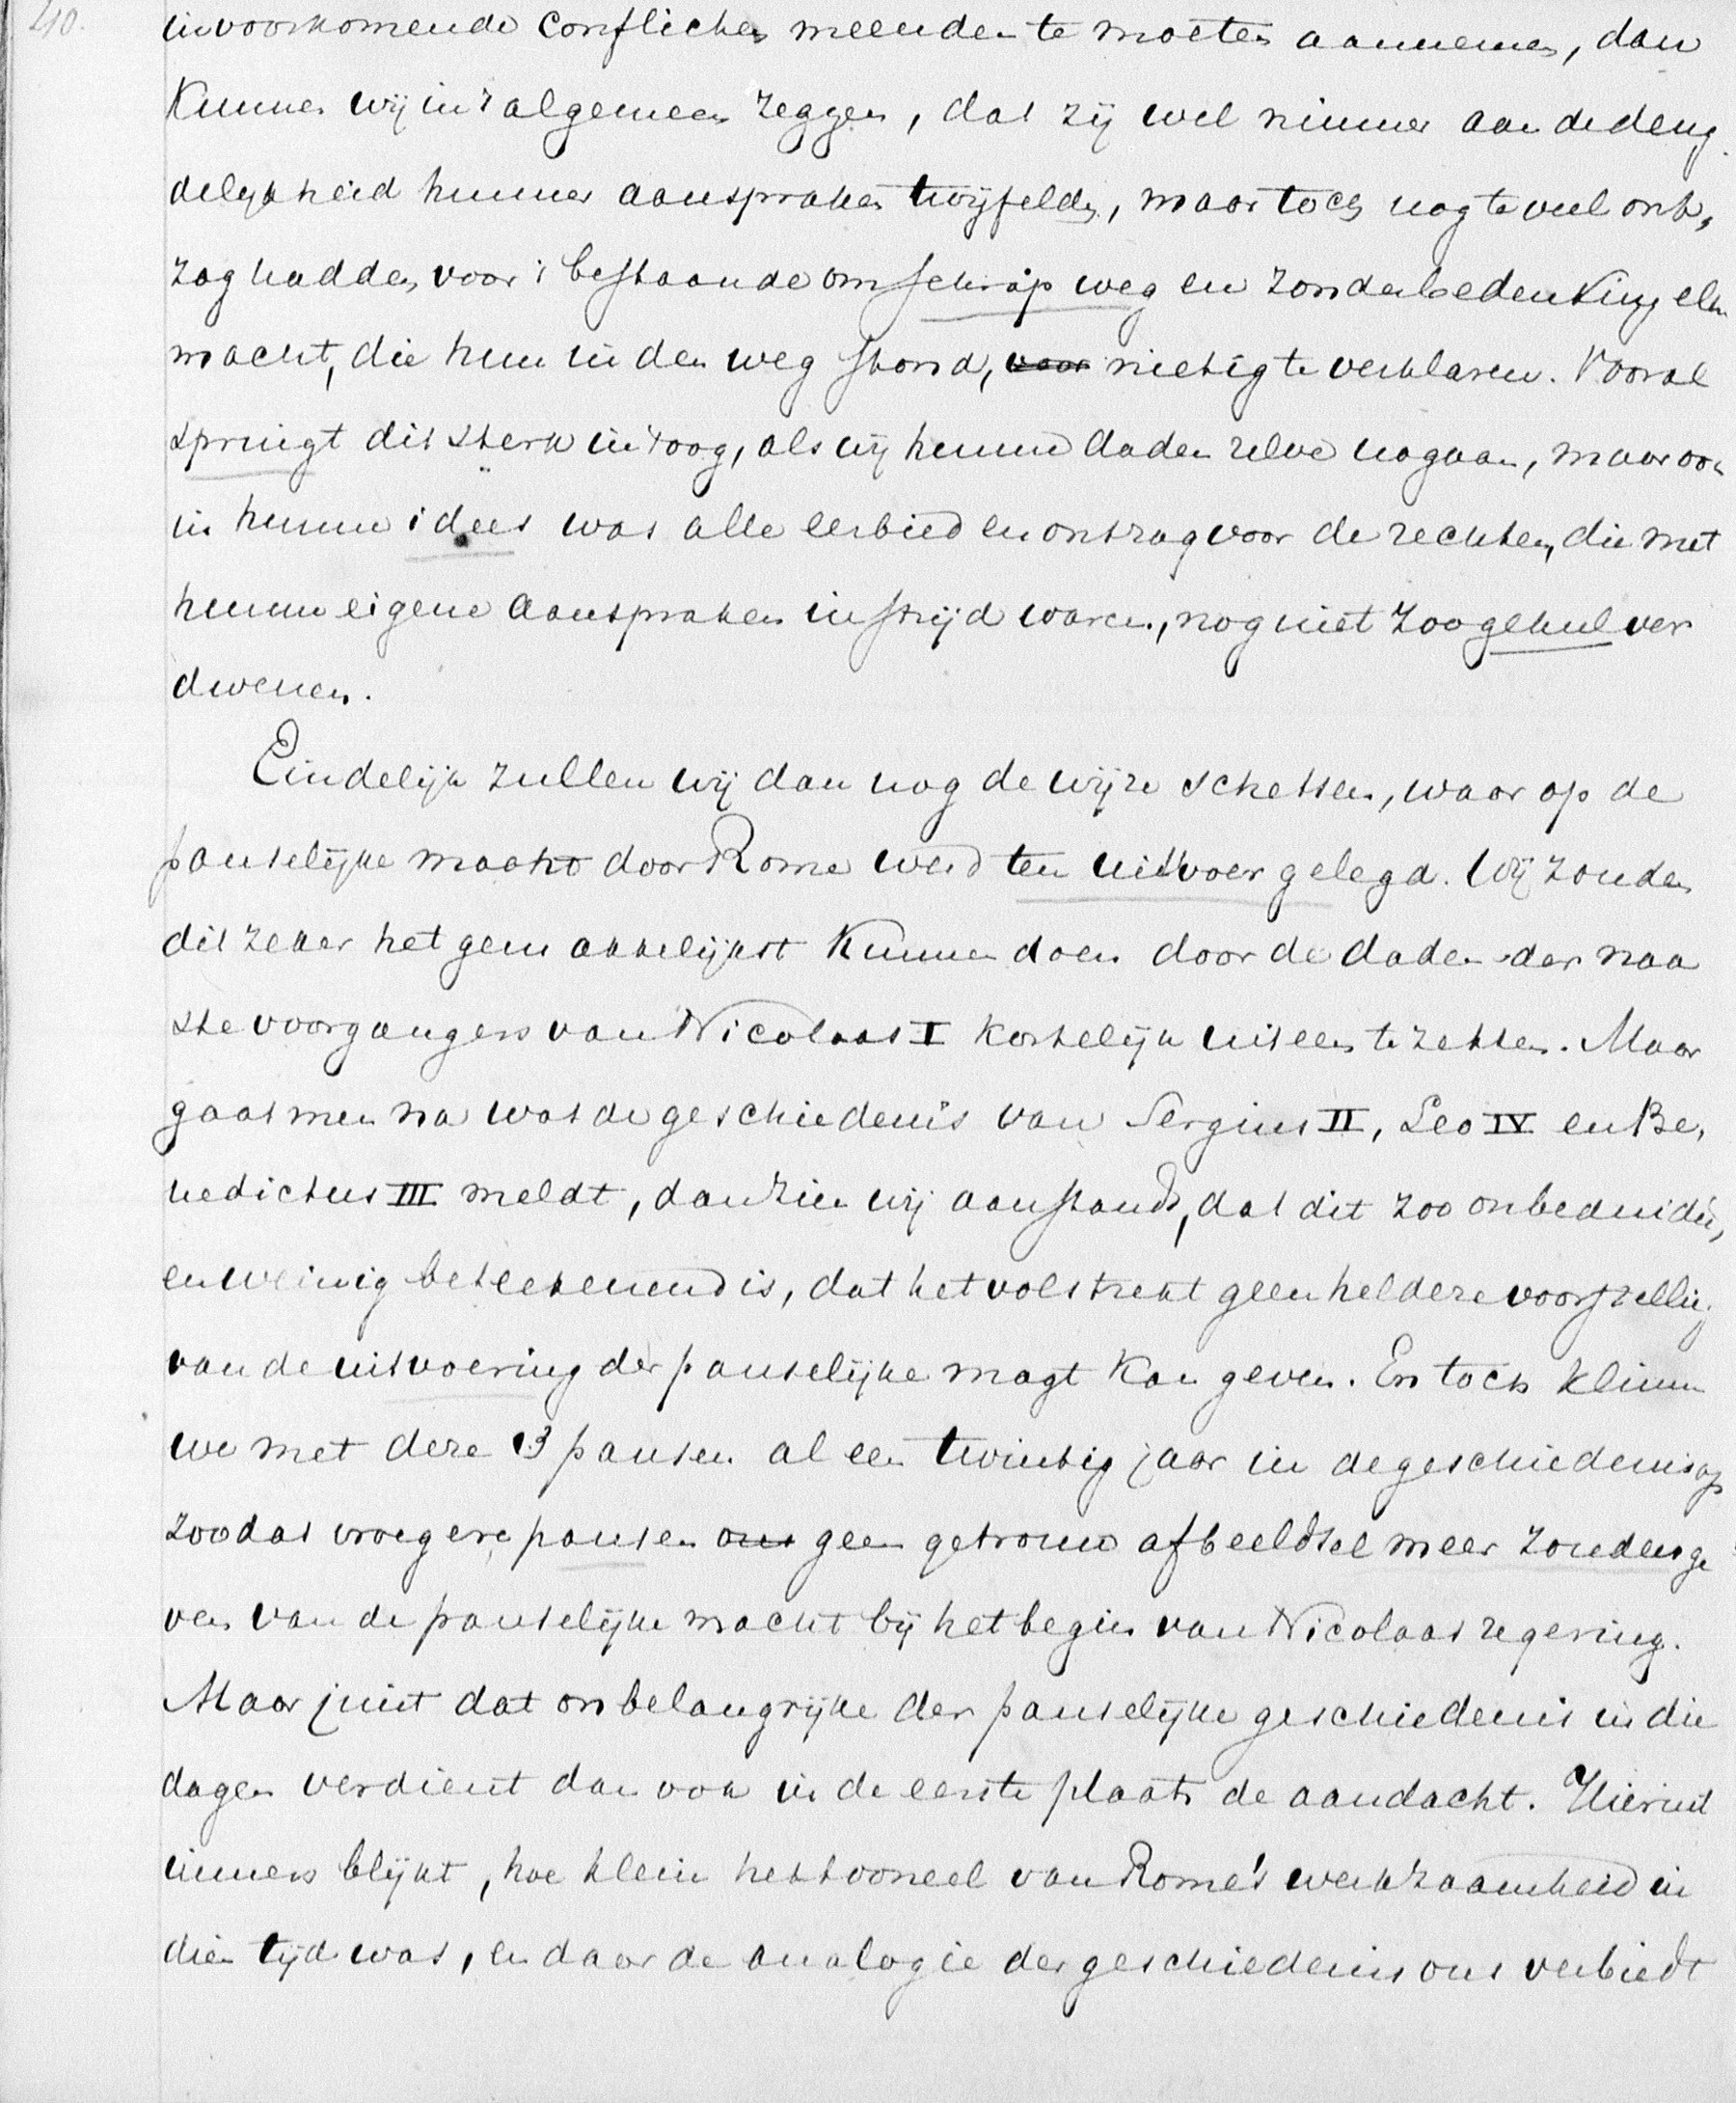 40.
in voorkomende conflicten meenden te moeten aannemen, dan
kunnen wij in 't algemeen zeggen, dat zij wel nimmer aan de deug
delijkheid hunner aanspraken twijfelden, maar toch nog te veel ont,
zag hadden voor 't bestaande om schrap weg en zonder bedenking elke
macht, die hun in den weg stond, voor nietig te verklaren. Vooral
springt dit sterk in 't oog, als wij hunne daden zelve nagaan, maar ook
in hunne idees was alle eerbied en ontzag voor de rechten, die met
hunne eigene aanspraken in strijd waren, nog niet zoo geheel ver
dwenen.
Eindelijk zullen wij dan nog de wijze schetsen, waar op de
pauselijke macht door Rome werd ten uitvoer gelegd. Wij zouden
dit zeker het gemakkelijkst kunnen doen door de daden der naa
ste voorgangers van Nicolaas I kortelijk uiteen te zetten. Maar
gaat men na wat de geschiedenis van Sergius II, Leo IV en Be,
nedictus III meldt, dan zien wij aanstonds, dat dit zoo onbeduidend,
en weinig beteekenend is, dat het volstrekt geen heldere voorstelling
van de uitvoering der pauselijke magt kan geven. En toch klimmen
we met deze 3 pausen al een twintig jaar in de geschiedenis op
zoodat vroegere pausen ons geen getrouw afbeeldsel meer zouden ge
ven van de pauselijke macht bij het begin van Nicolaas regering.
Maar juist dat onbelangrijke der pauselijke geschiedenis in die
dagen verdient dan ook in de eerste plaats de aandacht. Hieruit
immers blijkt, hoe klein het tooneel van Rome's werkzaamheid in
dien tijd was, en daar de analogie der geschiedenis ons verbiedt